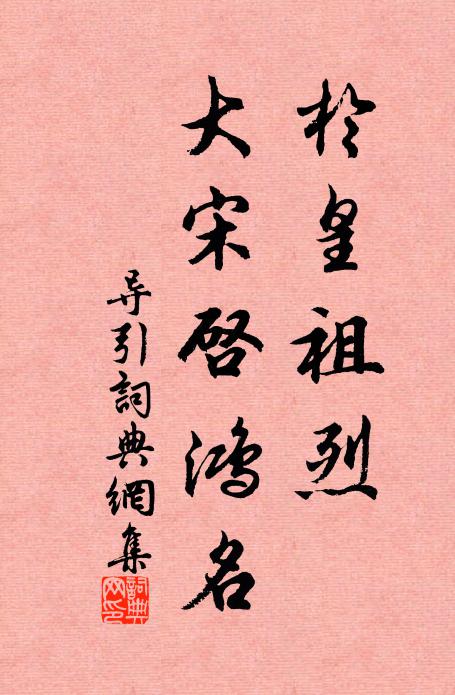 於皇祖烈
大宋啓鴻名
导引詞典網集
詞典網印